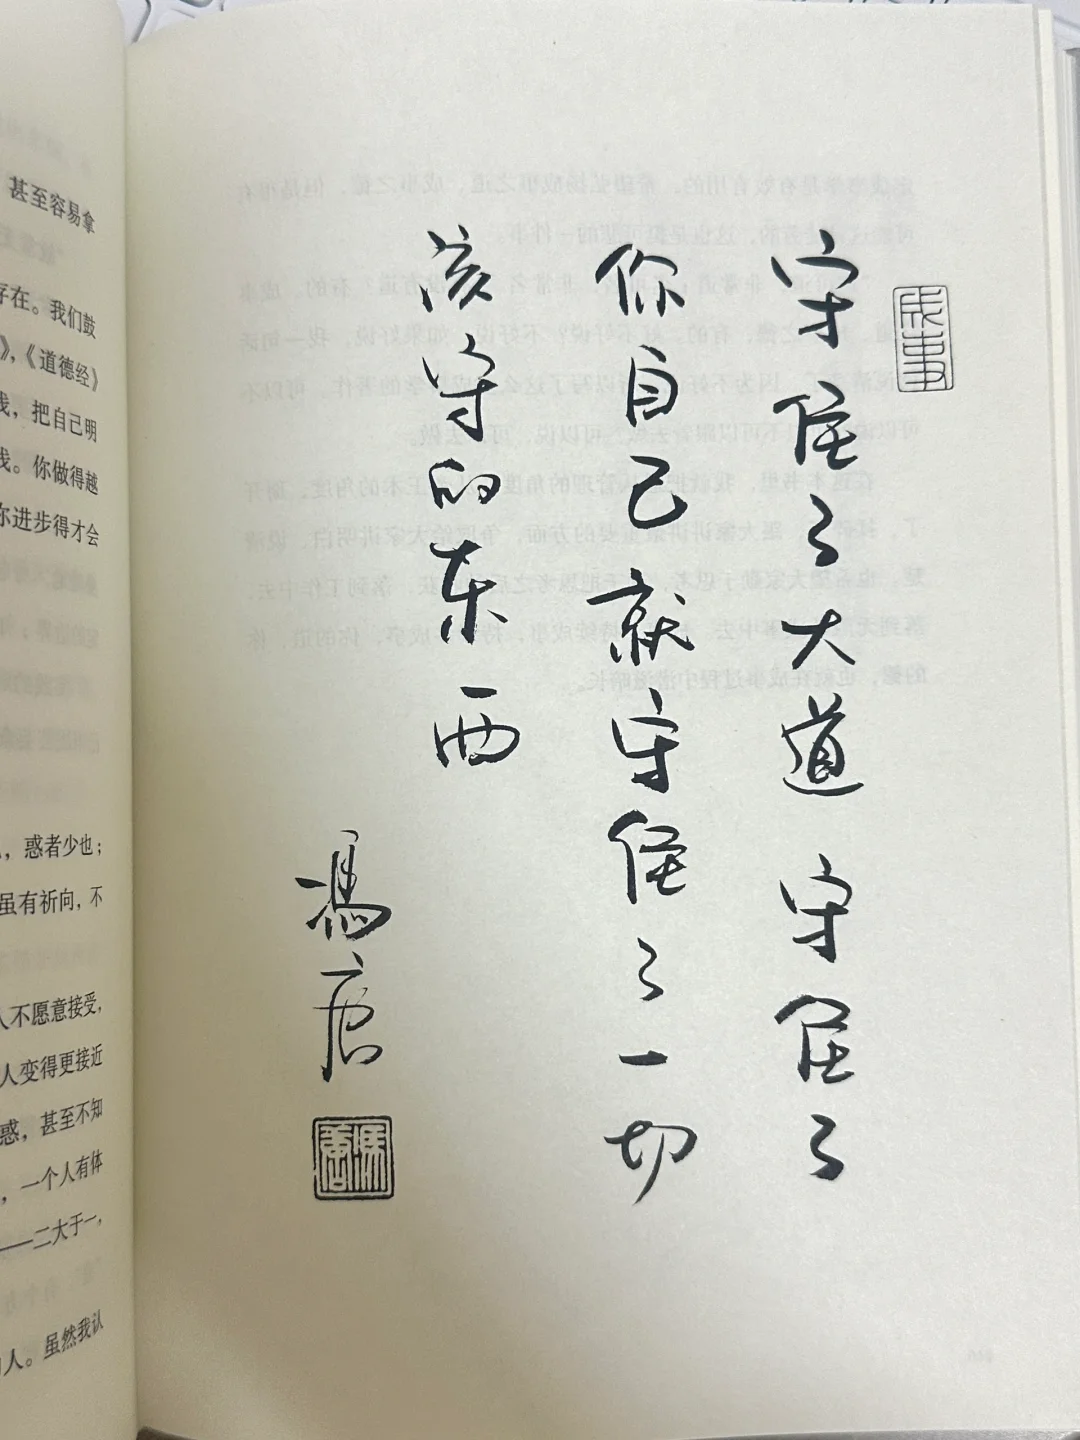 成事
守住了大道 守住了
你自己就守住了一切
该守的东西
馮唐
馮唐
甚至容易拿
存在。我们鼓
》，《道德经》
我，把自己明
我。你做得越
你进步得才会
，惑者少也；
虽有祈向，不
人不愿意接受，
人变得更接近
惑，甚至不知
，一个人有体
——二大于一，
人。虽然我认